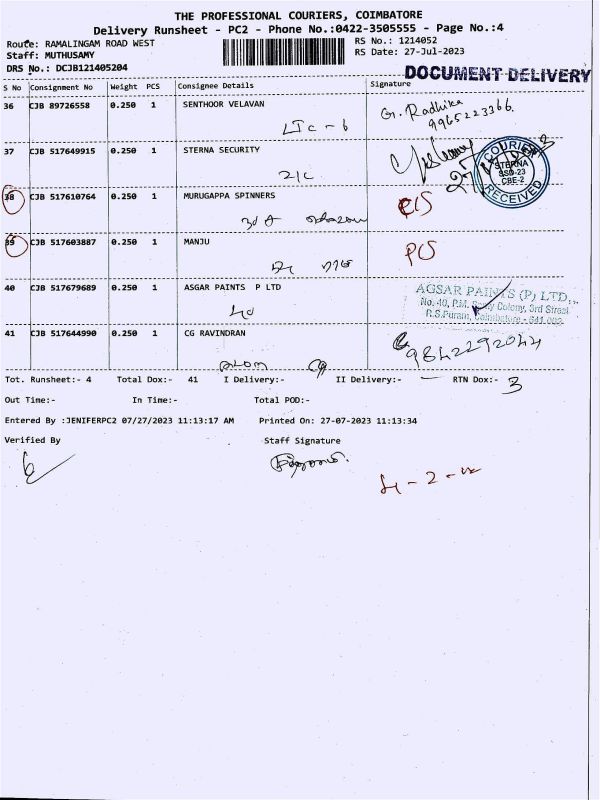 THE PROFESSIONAL COURIERS, COIMBATORE
Delivery Runsheet - PC2 - Phone No.:0422-3505555 - Page No.:4
Route: RAMALINGAM ROAD WEST RS No.: 1214052
Staff: MUTHUSAMY RS Date: 27-Jul-2023
DRS No.: DCJB121405204
DOCUMENT DELIVERY
S No Consignment No Weight PCS Consignee Details Signature
36 CJB 89726558 0.250 1 SENTHOOR VELAVAN G. Radhika
9965223366
37 CJB 517649915 0.250 1 STERNA SECURITY
21C
COURIER
STERNA
SSD-23
CBE-2
RECEIVED
38 CJB 517610764 0.250 1 MURUGAPPA SPINNERS
39 CJB 517603887 0.250 1 MANJU
40 CJB 517679689 0.250 1 ASGAR PAINTS P LTD
AGSAR PAINTS (P) LTD.,
No. 40, P.M. Colony, 3rd Street
R.S.Puram, Coimbatore - 641 002
41 CJB 517644990 0.250 1 CG RAVINDRAN
9842292044
Tot. Runsheet:- 4 Total Dox:- 41 I Delivery:- II Delivery:- RTN Dox:- 3
Out Time:- In Time:- Total POD:-
Entered By :JENIFERPC2 07/27/2023 11:13:17 AM Printed On: 27-07-2023 11:13:34
Verified By Staff Signature